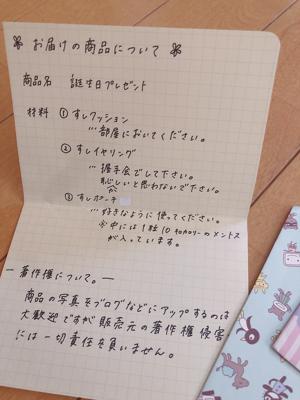 お届けの商品について
商品名 誕生日プレゼント
材料 ①すしクッション
…部屋においてください。
②すしイヤリング
…握手会でして下さい。
恥しいと思わないで下さい。
③すしポーチ
…好きなように使ってください。
※中には1粒10キロカロリーのメントス
が入っています。
ー著作権について。ー
商品の写真をブログなどにアップするのは
大歓迎ですが販売元の著作権侵害
には一切責任を負いません。